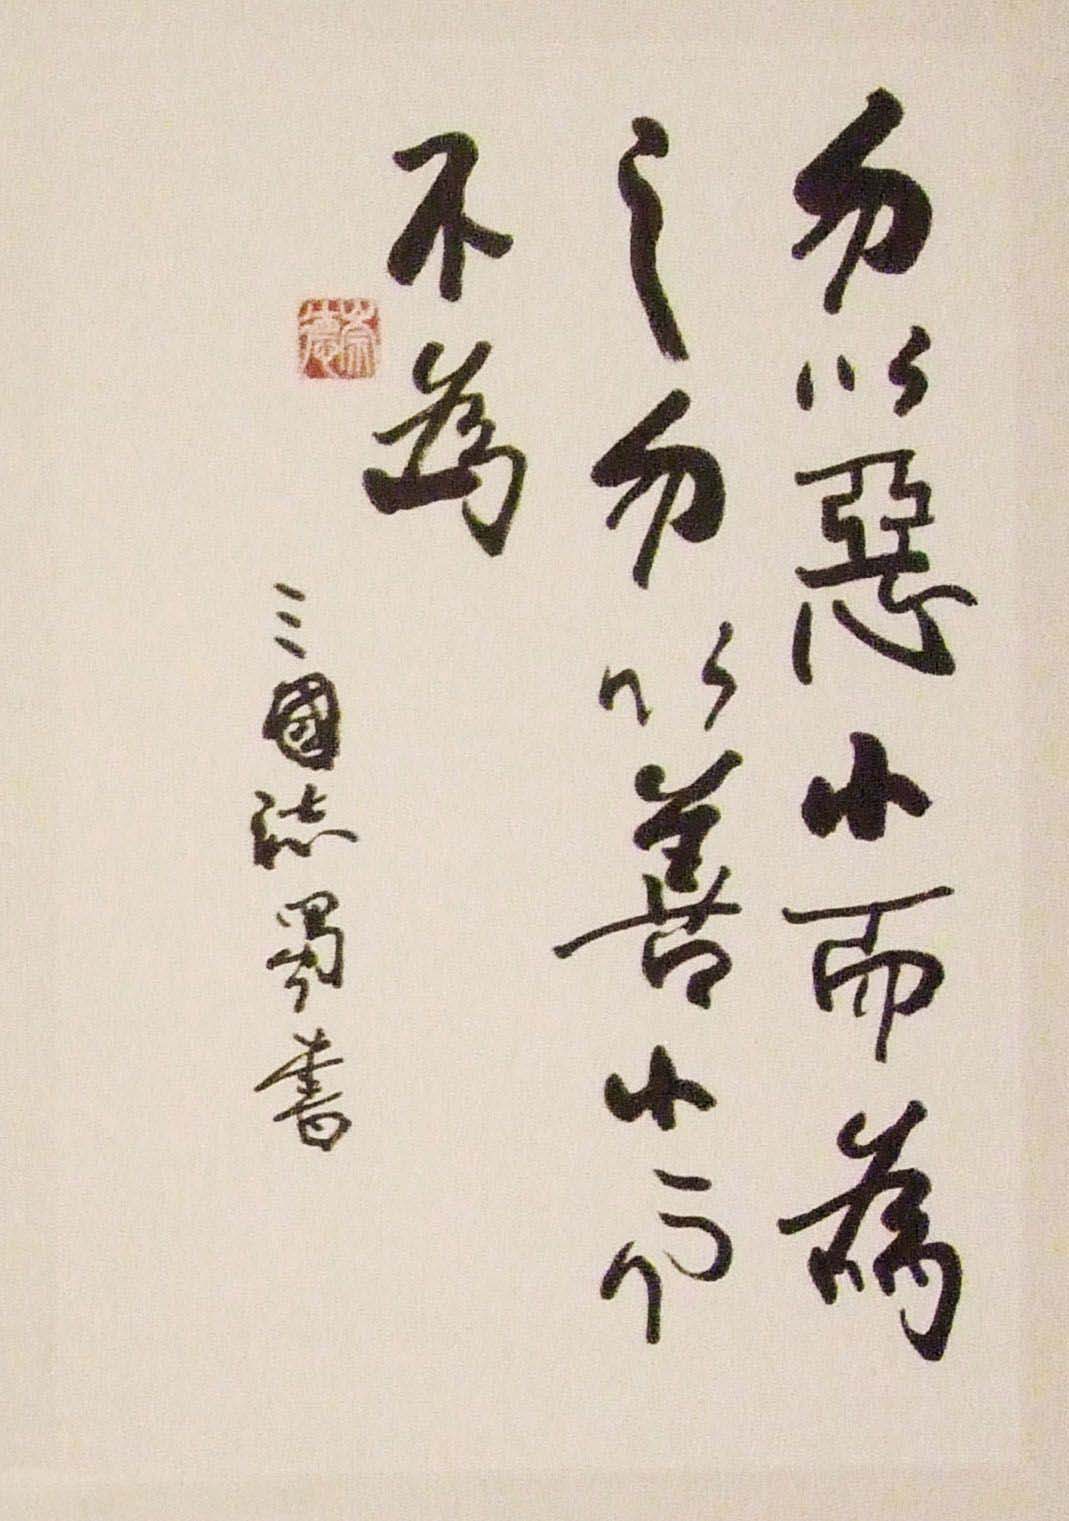 勿以惡小而為
之勿以善小而
不為
三國誌蜀書
崇德